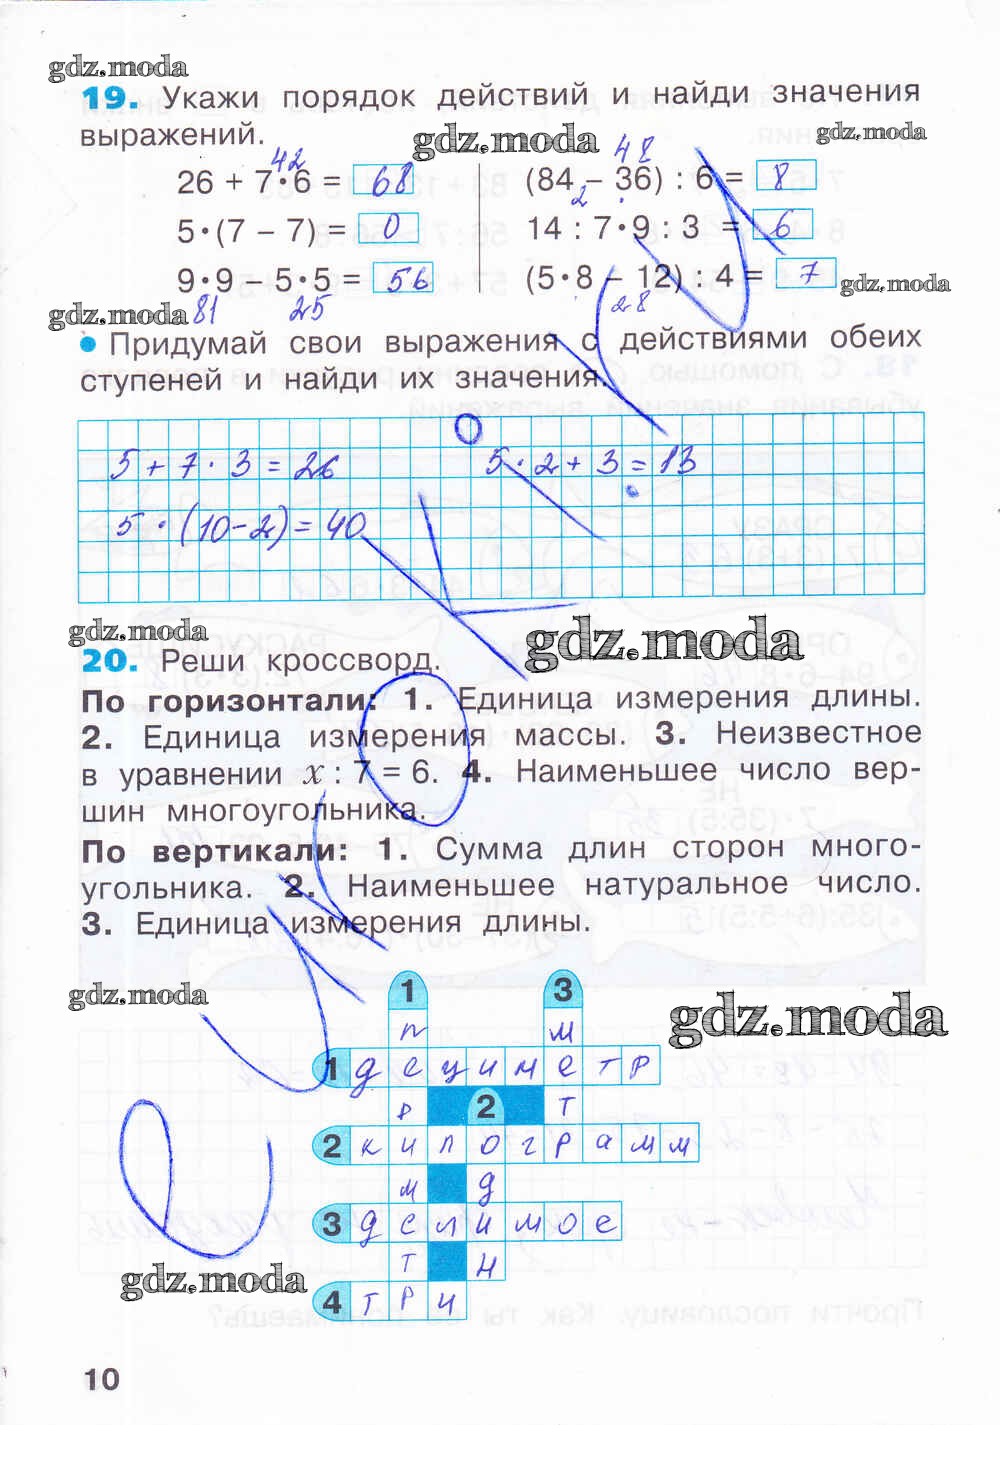 gdz.moda
19. Укажи порядок действий и найди значения
выражений.
gdz.moda
gdz.moda
42
48
26 + 7•6 = 68
(84 – 36) : 6 = 8
2
5•(7 – 7) = 0
14 : 7•9 : 3 = 6
9•9 – 5•5 = 56
(5•8 – 12) : 4 = 7
gdz.moda
gdz.moda
81
25
28
• Придумай свои выражения с действиями обеих
ступеней и найди их значения.
5 + 7 · 3 = 26
5 · 2 + 3 = 13
5 · (10-2) = 40
gdz.moda
gdz.moda
20. Реши кроссворд.
По горизонтали: 1. Единица измерения длины.
2. Единица измерения массы. 3. Неизвестное
в уравнении x : 7 = 6. 4. Наименьшее число вер-
шин многоугольника.
По вертикали: 1. Сумма длин сторон много-
угольника. 2. Наименьшее натуральное число.
3. Единица измерения длины.
gdz.moda
gdz.moda
1 3
п м
1 дециметр
р 2 т
2 килограмм
м д
3 делимое
т н
4 три
gdz.moda
10
euroki